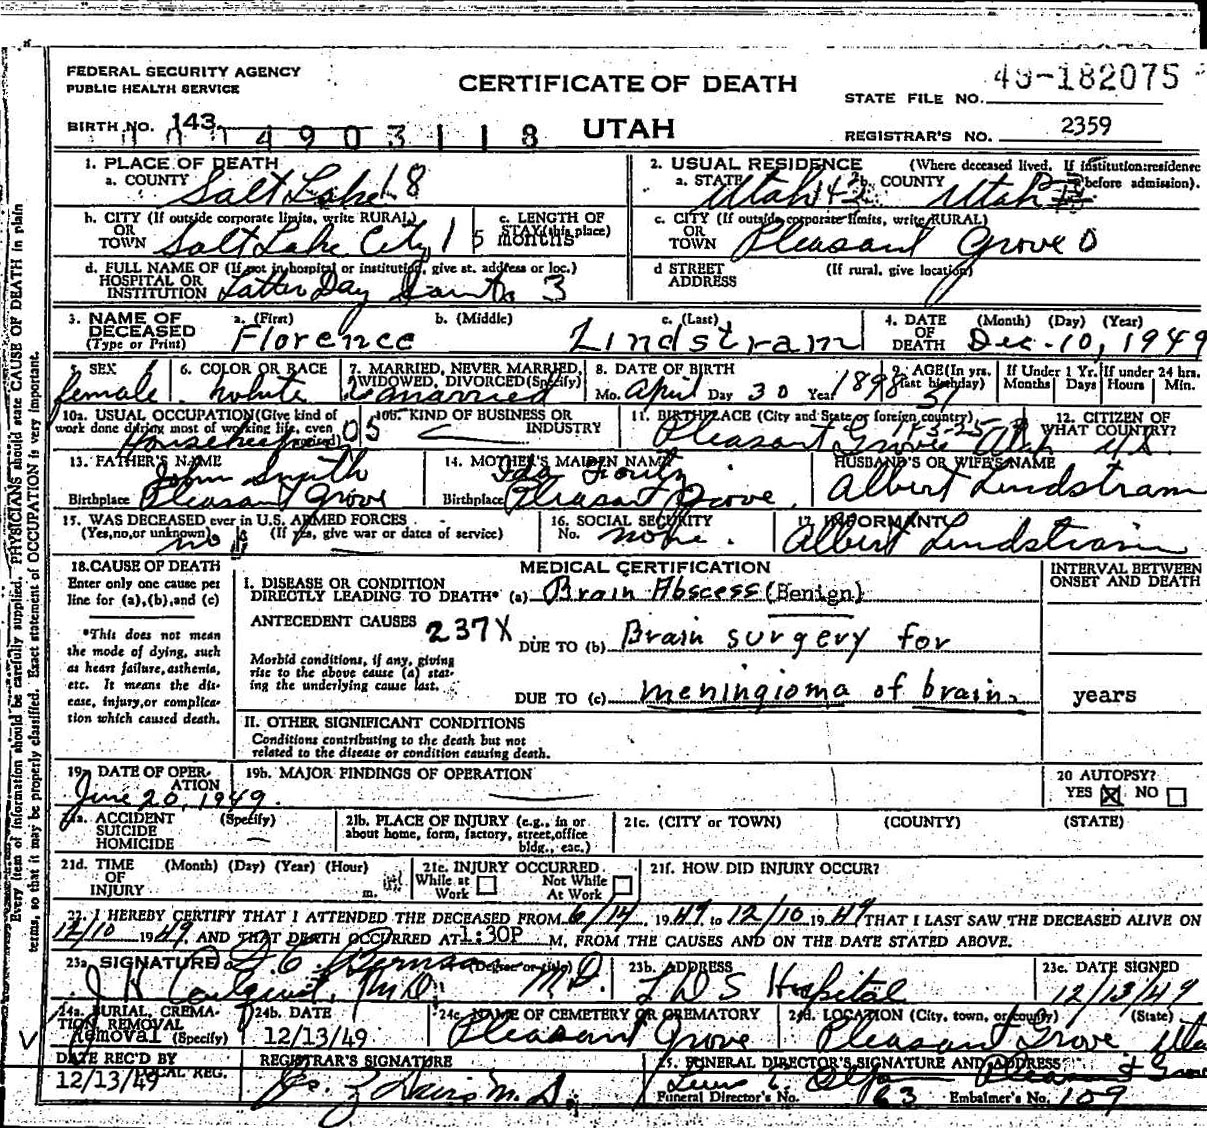 FEDERAL SECURITY AGENCY
PUBLIC HEALTH SERVICE
CERTIFICATE OF DEATH
49-182075
STATE FILE NO.
BIRTH NO. 143
14903118
UTAH
REGISTRAR'S NO. 2359
1. PLACE OF DEATH
a. COUNTY Salt Lake 18
2. USUAL RESIDENCE (Where deceased lived. If institution: residence before admission).
a. STATE Utah 143 COUNTY Utah
b. CITY (If outside corporate limits, write RURAL)
OR TOWN Salt Lake City 1
c. LENGTH OF STAY (this place)
5 months
c. CITY (If outside corporate limits, write RURAL)
OR TOWN Pleasant Grove 0
d. FULL NAME OF (If not in hospital or institution, give st. address or loc.)
HOSPITAL OR INSTITUTION Latter Day Saints 3
d STREET ADDRESS (If rural, give location)
3. NAME OF DECEASED (Type or Print)
a. (First) Florence
b. (Middle)
c. (Last) Lindstram
4. DATE OF DEATH (Month) (Day) (Year)
Dec. 10, 1949
5. SEX
female
6. COLOR OR RACE
white
7. MARRIED, NEVER MARRIED, WIDOWED, DIVORCED (Specify)
married
8. DATE OF BIRTH
Mo. April Day 30 Year 1898
9. AGE (In yrs. last birthday)
51
If Under 1 Yr. Months Days
If under 24 hrs. Hours Min.
10a. USUAL OCCUPATION (Give kind of work done during most of working life, even
05
10b. KIND OF BUSINESS OR INDUSTRY
11. BIRTHPLACE (City and State or foreign country)
Pleasant Grove Utah
12. CITIZEN OF WHAT COUNTRY?
U.S.
13. FATHER'S NAME
John Smith
Birthplace Pleasant Grove
14. MOTHER'S MAIDEN NAME
Ida
Birthplace Pleasant Grove.
HUSBAND'S OR WIFE'S NAME
Albert Lindstram
15. WAS DECEASED ever in U.S. ARMED FORCES
(Yes, no, or unknown) (If yes, give war or dates of service)
no
16. SOCIAL SECURITY No. none.
17. INFORMANT
Albert Lindstram
18. CAUSE OF DEATH
Enter only one cause per line for (a), (b), and (c)
*This does not mean the mode of dying, such as heart failure, asthenia, etc. It means the disease, injury, or complication which caused death.
MEDICAL CERTIFICATION
INTERVAL BETWEEN ONSET AND DEATH
I. DISEASE OR CONDITION DIRECTLY LEADING TO DEATH* (a) Brain Abscess (Benign)
ANTECEDENT CAUSES 237X
DUE TO (b) Brain surgery for
Morbid conditions, if any, giving rise to the above cause (a) stating the underlying cause last.
DUE TO (c) meningioma of brain.
years
II. OTHER SIGNIFICANT CONDITIONS
Conditions contributing to the death but not related to the disease or condition causing death.
19. DATE OF OPERATION
June 20, 1949.
19b. MAJOR FINDINGS OF OPERATION
20 AUTOPSY?
YES NO
21a. ACCIDENT SUICIDE HOMICIDE (Specify)
21b. PLACE OF INJURY (e.g., in or about home, form, factory, street, office bldg., eac.)
21c. (CITY or TOWN) (COUNTY) (STATE)
21d. TIME OF INJURY (Month) (Day) (Year) (Hour) m.
21e. INJURY OCCURRED
While at Work Not While At Work
21f. HOW DID INJURY OCCUR?
22. I HEREBY CERTIFY THAT I ATTENDED THE DECEASED FROM 6/14 1949 to 12/10 1949 THAT I LAST SAW THE DECEASED ALIVE ON
12/10 1949, AND THAT DEATH OCCURRED AT 1:30P M, FROM THE CAUSES AND ON THE DATE STATED ABOVE.
23a. SIGNATURE (Degree or title)
M.D.
23b. ADDRESS
LDS Hospital
23c. DATE SIGNED
12/13/49
24a. BURIAL, CREMATION, REMOVAL (Specify)
Removal
24b. DATE
12/13/49
24c. NAME OF CEMETERY OR CREMATORY
Pleasant Grove
24d. LOCATION (City, town, or county) (State)
Pleasant Grove, Uta
DATE REC'D BY LOCAL REG.
12/13/49
REGISTRAR'S SIGNATURE
25. FUNERAL DIRECTOR'S SIGNATURE AND ADDRESS
Pleasant Grove
Funeral Director's No. 63 Embalmer's No. 109
Every item of information should be carefully supplied. PHYSICIANS should state CAUSE OF DEATH in plain
terms, so that it may be properly classified. Exact statement of OCCUPATION is very important.